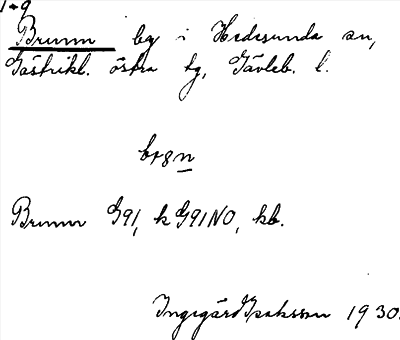 Brunn by i Hedesunda sn,
Gästrikl. östra tg, Gävleb. l.
Brunn G91, k G91NO, kb.
Ingegärd Isaksson 1930.